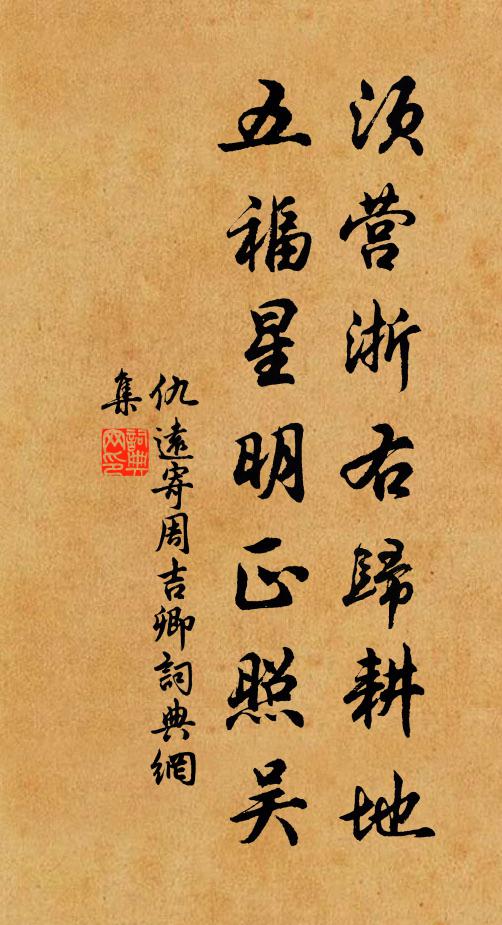 須营浙右歸耕地
五福星明正照吴
仇遠寄周吉卿詞典網
集
詞典網印